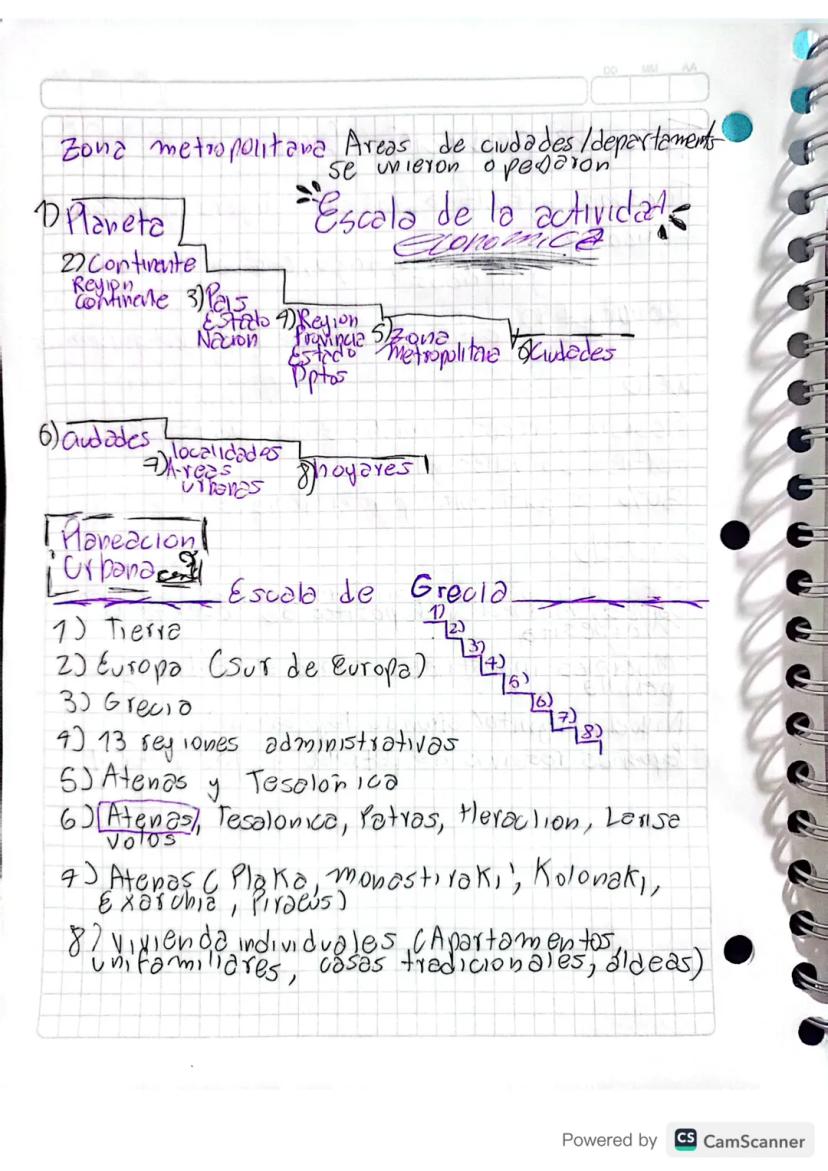 DD MM AA
Zona metropolitana Areas de ciudades/departaments
se unieron o pegaron
"Escala de la actividad
economica
1) Planeta
2) Continente
Region
continente
3) Pais
Estado
Nacion
4) Region
Provincia
Estado
Dptos
5) Zona
metropolitana
6) Ciudades
6) Ciudades
7) localidades
Areas
urbanas
8) hogares
Planeacion
Urbana
Escala de Grecia
1)
2)
3)
4)
5)
6)
7)
8)
1) Tierra
2) Europa (Sur de Europa)
3) Grecia
4) 13 regiones administrativas
5) Atenas y Tesalonica
6) Atenas, Tesalonica, Patras, Heraclion, Larisa
Volos
7) Atenas ( Plaka, monastiraki, Kolonaki,
Exarchia, Piraeus)
8) vivienda individuales (Apartamentos,
unifamiliares, casas tradicionales, aldeas)
Powered by CS CamScanner